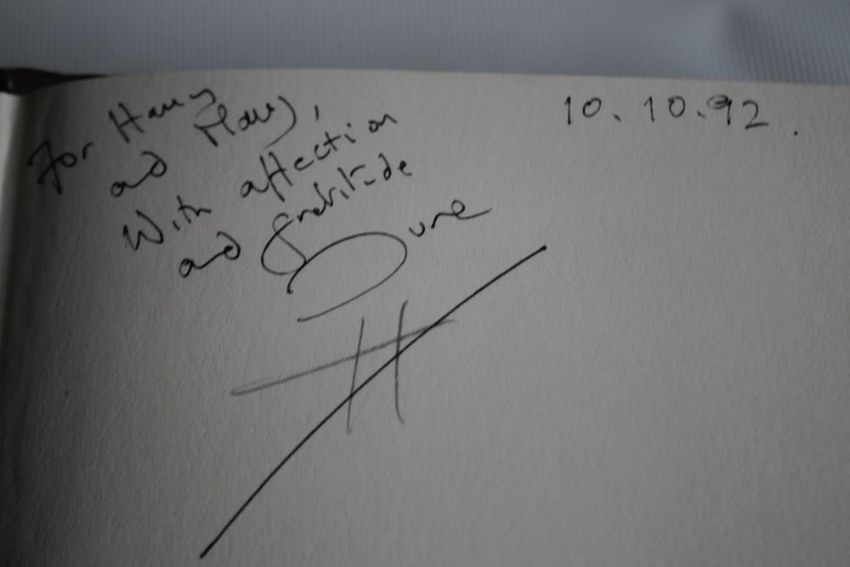 For Harry
and Mary,
With affection
and gratitude
June
10.10.92.